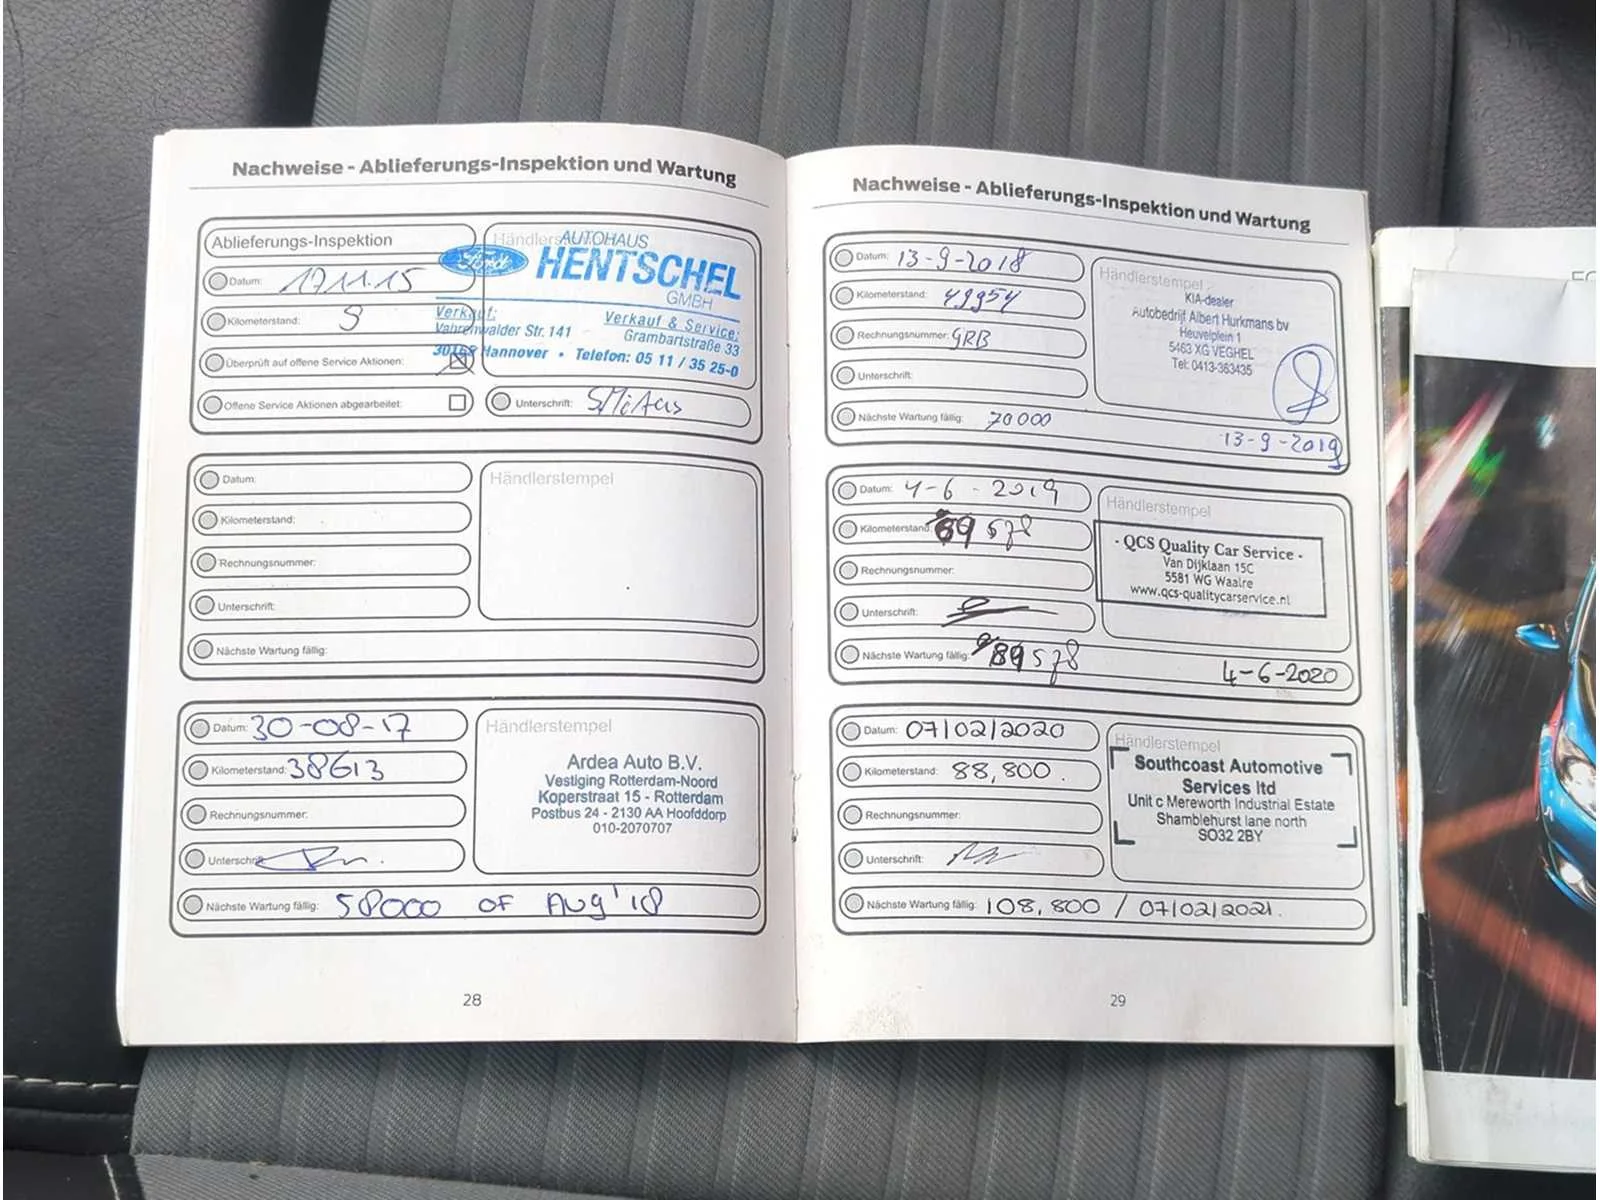 Nachweise - Ablieferungs-Inspektion und Wartung
Ablieferungs-Inspektion
Datum: 17.11.15
Kilometerstand: 8
Überprüft auf offene Service Aktionen:
Offene Service Aktionen abgearbeitet:
Händlerstempel
Ford
AUTOHAUS
HENTSCHEL
GMBH
Verkauf:
Vahrenwalder Str. 141
Verkauf & Service:
Grambartstraße 33
30165 Hannover • Telefon: 05 11 / 35 25-0
Unterschrift:
Datum:
Kilometerstand:
Rechnungsnummer:
Unterschrift:
Nächste Wartung fällig:
Händlerstempel
Datum: 30-08-17
Kilometerstand: 38613
Rechnungsnummer:
Unterschrift:
Nächste Wartung fällig: 58000 OF AUG'18
Händlerstempel
Ardea Auto B.V.
Vestiging Rotterdam-Noord
Koperstraat 15 - Rotterdam
Postbus 24 - 2130 AA Hoofddorp
010-2070707
28
Nachweise - Ablieferungs-Inspektion und Wartung
Datum: 13-9-2018
Kilometerstand: 49954
Rechnungsnummer: GRB
Unterschrift:
Nächste Wartung fällig: 70000
13-9-2019
Händlerstempel
KIA-dealer
Autobedrijf Albert Hurkmans bv
Heuvelplein 1
5463 XG VEGHEL
Tel: 0413-363435
Datum: 4-6-2019
Kilometerstand: 69578
Rechnungsnummer:
Unterschrift:
Nächste Wartung fällig: 89578
4-6-2020
Händlerstempel
- QCS Quality Car Service -
Van Dijklaan 15C
5581 WG Waalre
www.qcs-qualitycarservice.nl
Datum: 07/02/2020
Kilometerstand: 88,800.
Rechnungsnummer:
Unterschrift:
Nächste Wartung fällig: 108,800 / 07/02/2021.
Händlerstempel
Southcoast Automotive
Services ltd
Unit c Mereworth Industrial Estate
Shamblehurst lane north
SO32 2BY
29